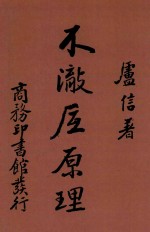 盧信著
不澈底原理
商務印書館發行